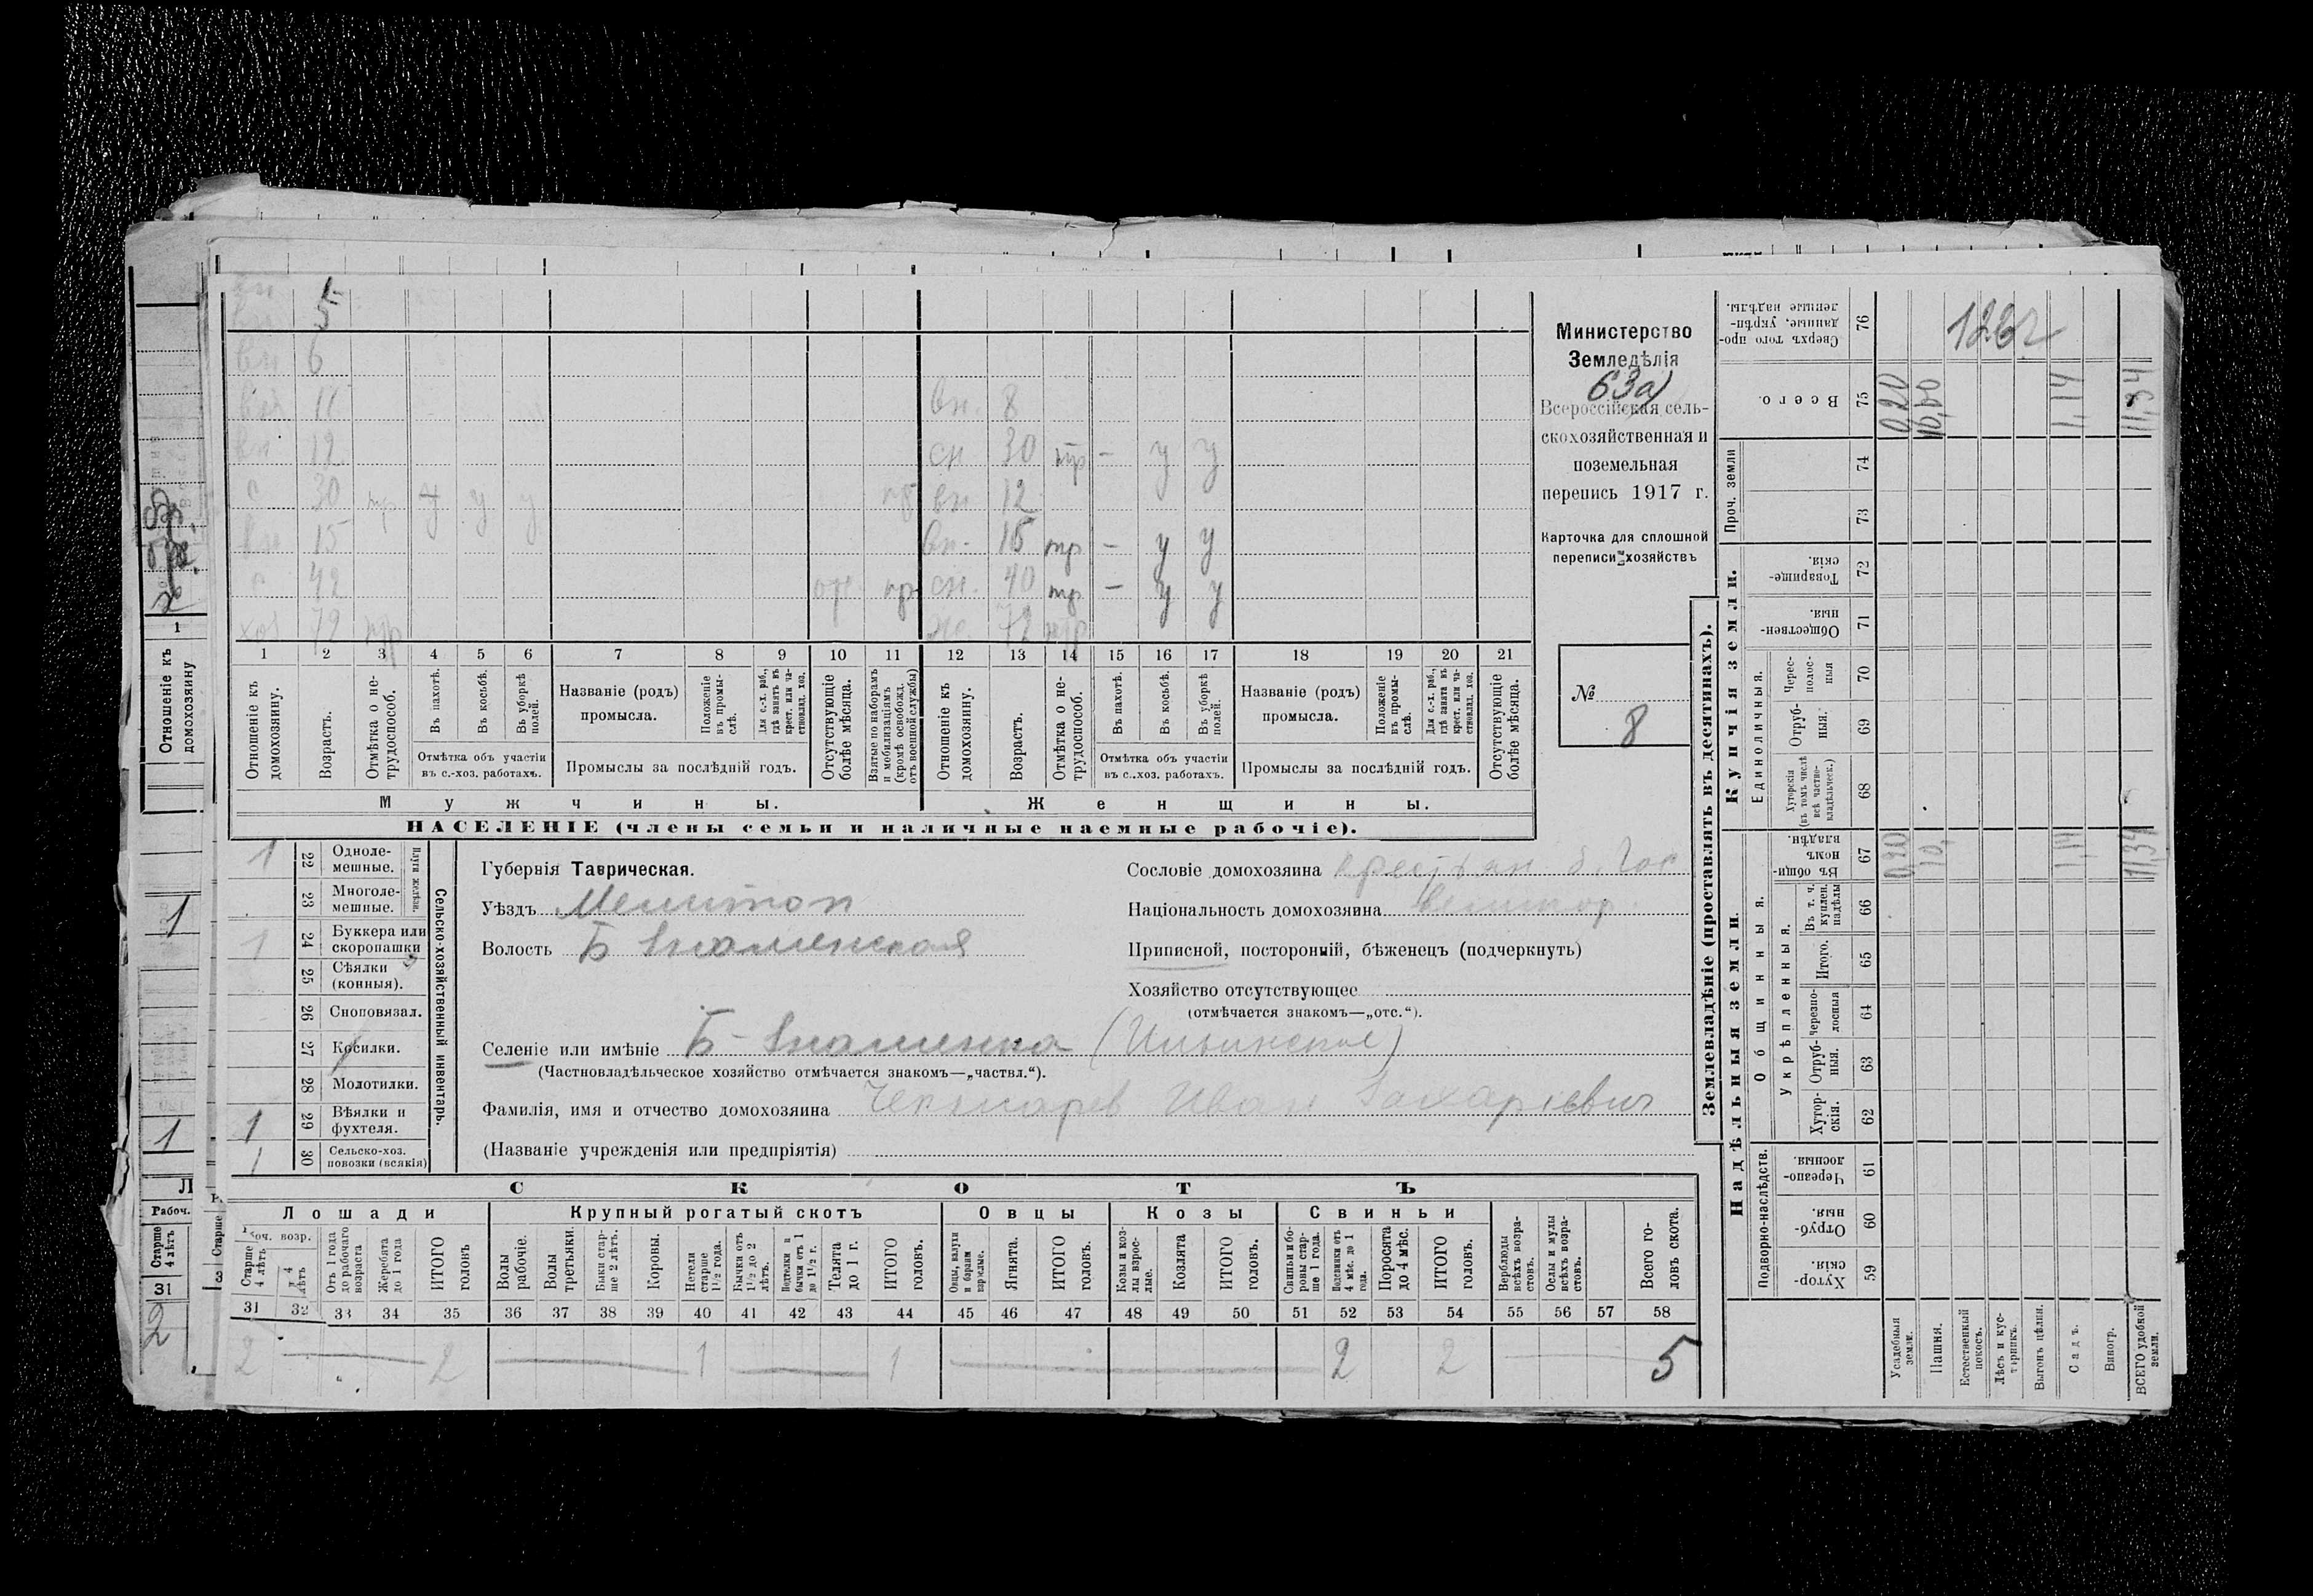 5
вн 6
вн 11
вн 12
с 30 тр у у у
вн 15
с 42 отс пр
хоз 72 тр
вн. 8
сн 30 тр — у у
вн 12
вн. 15 тр — у у
сн. 40 тр — у у
ж. 72 тр
1 2 3 4 5 6 7 8 9 10 11 12 13 14 15 16 17 18 19 20 21
Отношеніе къ домохозяину.
Возрастъ.
Отмѣтка о нетрудоспособ.
Въ пахотѣ.
Въ косьбѣ.
Въ уборкѣ полей.
Отмѣтка объ участіи въ с.-хоз. работахъ.
Названіе (родъ) промысла.
Положеніе въ промыслѣ.
Для с.-х. раб., гдѣ занятъ въ крест. или частновлад. хоз.
Промыслы за послѣдній годъ.
Отсутствующіе болѣе мѣсяца.
Взятые по наборамъ и мобилизаціямъ (кромѣ освобожд. отъ военной службы)
Отношеніе къ домохозяину.
Возрастъ.
Отмѣтка о нетрудоспособ.
Въ пахотѣ.
Въ косьбѣ,
Въ уборкѣ полей.
Отмѣтка объ участіи въ с.-хоз. работахъ.
Названіе (родъ) промысла.
Положеніе въ промыслѣ.
Для с.-х. раб., гдѣ занята въ крест. или частновлад. хоз.
Промыслы за послѣдній годъ.
Отсутствующіе болѣе мѣсяца.
Мужчины.
Женщины.
НАСЕЛЕНІЕ (члены семьи и наличные наемные рабочіе).
Министерство
Земледѣлія
63а)
Всероссійская сель-
скохозяйственная и
поземельная
перепись 1917 г.
Карточка для сплошной
переписи хозяйствъ
№ 8
1 22 Одноле-
мешные.
23 Многоле-
мешные.
Плуги желѣзн.
1 24 Буккера или
скоропашки
25 Сѣялки
(конныя).
26 Сноповязал.
27 Косилки.
28 Молотилки.
1 29 Вѣялки и
фухтеля.
1 30 Сельско-хоз.
повозки (всякія)
Сельско-хозяйственный инвентарь.
Губернія Таврическая.
Уѣздъ Мелитоп
Волость Б Знаменская
Селеніе или имѣніе Б-Знаменка (Ильинское)
(Частновладѣльческое хозяйство отмѣчается знакомъ—„частвл.“).
Фамилія, имя и отчество домохозяина Чекмарев Иван Захаріевич
(Названіе учрежденія или предпріятія)
Сословіе домохозяина крестьян б. Гос
Національность домохозяина великор.
Приписной, посторонній, бѣженецъ (подчеркнуть)
Хозяйство отсутствующее
(отмѣчается знакомъ—„отс.“).
СКОТЪ
Лошади
Крупный рогатый скотъ
Овцы
Козы
Свиньи
Старше 4 лѣтъ
Отъ 1 года до рабочаго возраста
Жеребята до 1 года
ИТОГО головъ
Волы рабочіе.
Волы третьяки.
Быки старше 2 лѣтъ.
Коровы.
Нетели старше 1½ года.
Бычки отъ 1½ до 2 лѣтъ.
Подтелки и бычки отъ 1 до 1½ г.
Телята до 1 г.
ИТОГО головъ.
Овцы, валухи и бараны взрослые.
Ягнята.
ИТОГО головъ.
Козы и козлы взрослые.
Козлята
ИТОГО головъ.
Свиньи и боровы старше 1 года.
Подсвинки отъ 4 мѣс. до 1 года.
Поросята до 4 мѣс.
ИТОГО головъ.
Верблюды всѣхъ возрастовъ.
Ослы и мулы всѣхъ возрастовъ.
Всего головъ скота.
31 32 33 34 35 36 37 38 39 40 41 42 43 44 45 46 47 48 49 50 51 52 53 54 55 56 57 58
2 2 1 1 2 2 5
Землевладѣніе (проставлять въ десятинахъ).
Сверхъ того проданные, укрѣпленные надѣлы. 76
Всего. 75
Проч. земли 74 73
Купчія земли.
Товарищескія. 72
Общественныя. 71
Единоличныя.
Черезполосныя 70
Отрубныя. 69
Хуторскія (въ томъ числѣ всѣ частновладѣльческ.) 68
Надѣльныя земли.
Общинныя.
Въ общинномъ владѣн. 67
Укрѣпленныя.
Въ т. ч. куплен. надѣлы 66
Итого. 65
Черезполосныя 64
Отрубныя. 63
Хуторскія. 62
Подворно-наслѣдств.
Черезполосныя. 61
Отрубныя. 60
Хуторскія. 59
Усадебныя земли. 0,20 0,20
Пашня. 10, 10,00
Естественный покосъ.
Лѣсъ и кустарникъ.
Выгонъ цѣлин.
Садъ. 1,14 1,14
Виногр.
ВСЕГО удобной земли. 11,34 11,34
1
Отношеніе къ домохозяину
1
1
Рабоч.
Старше 4 лѣтъ
31
2